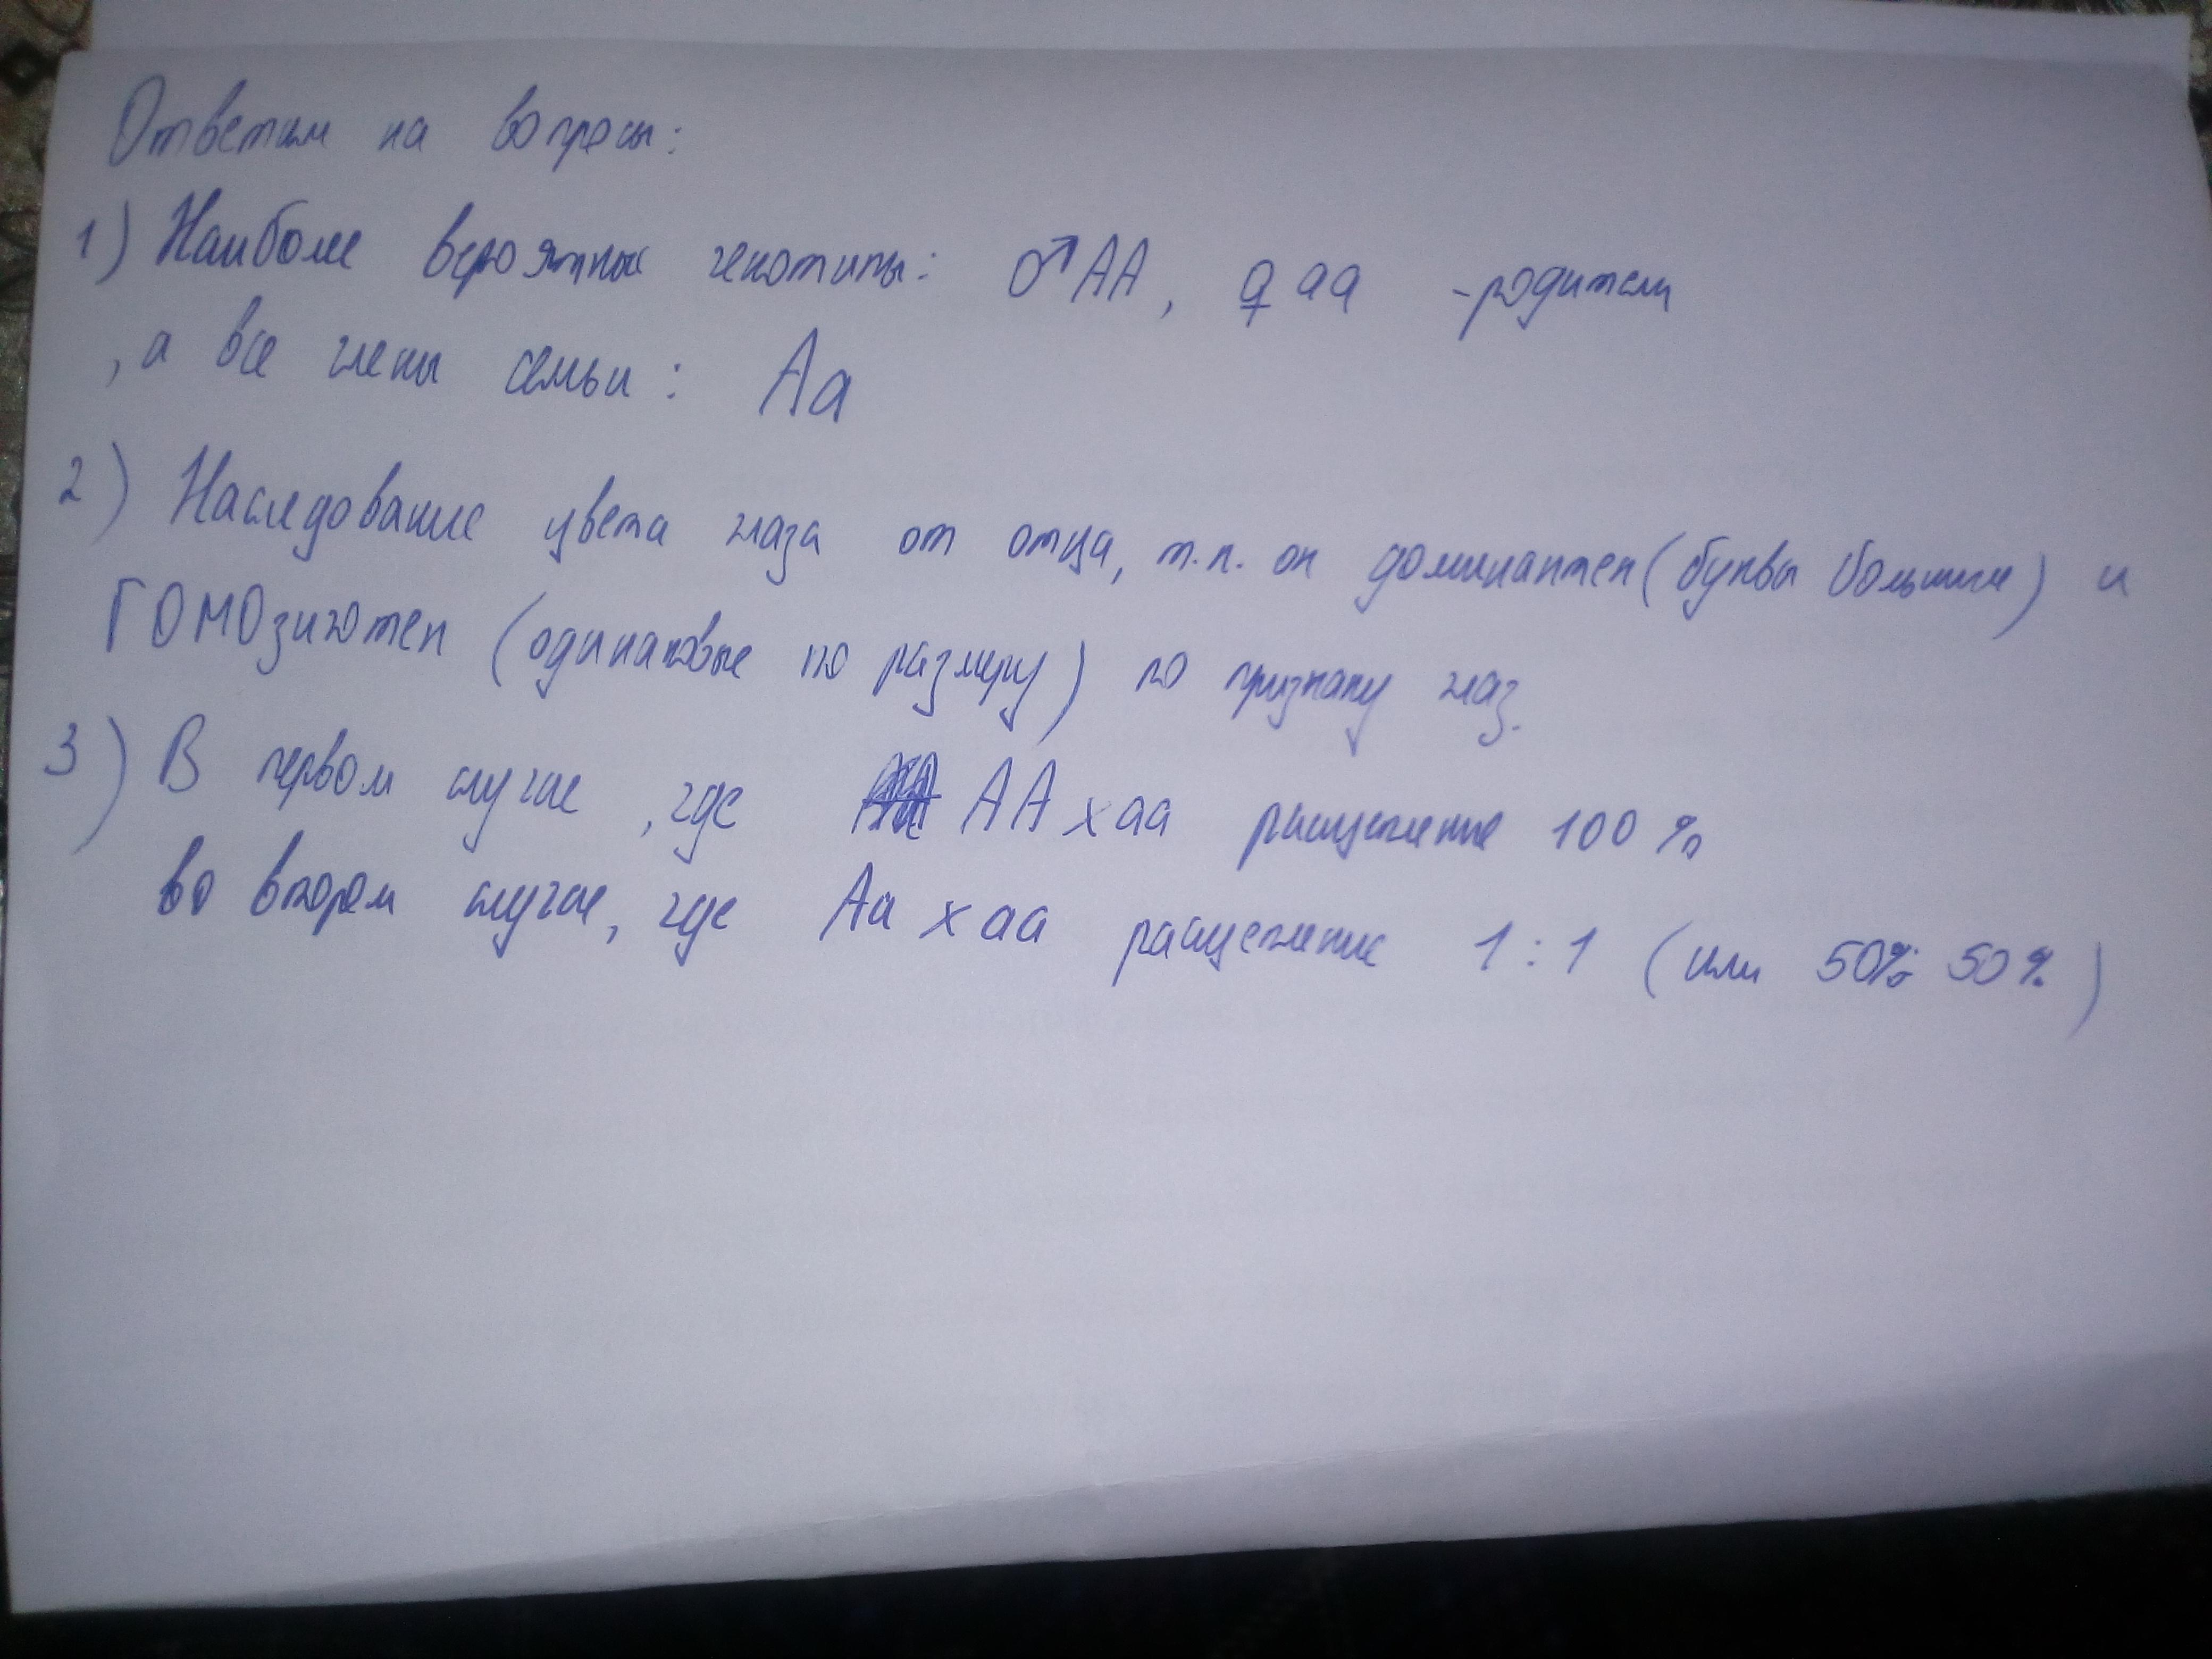 Ответим на вопросы:
1) Наиболее вероятные генотипы: ♂АА, ♀аа - родители
, а все члены семьи: Аа
2) Наследование цвета глаза от отца, т.к. он доминантен (буквы большие) и
ГОМОзиготен (одинаковые по размеру) по признаку глаз.
3) В первом случае, где АА х аа расщепление 100 %
во втором случае, где Аа х аа расщепление 1 : 1 (или 50% 50 %)